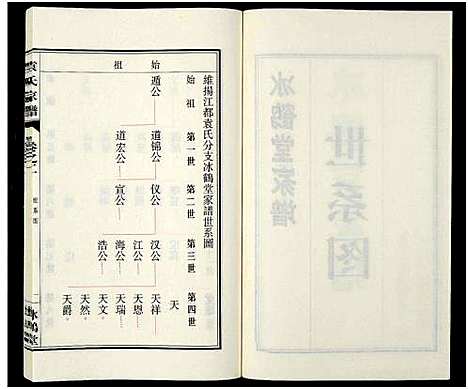 冰鹤堂家谱
世系图
始祖
維揚江都袁氏分支冰鶴堂家譜世系圖
始祖 第一世 第二世 第三世 第四世
遁公
道锦公 仪公 汉公 天祥
江公 天恩
道宏公 宣公 海公 天瑞
浩公 天文
天然
天爵
天
袁氏家譜
世系图
冰鶴堂